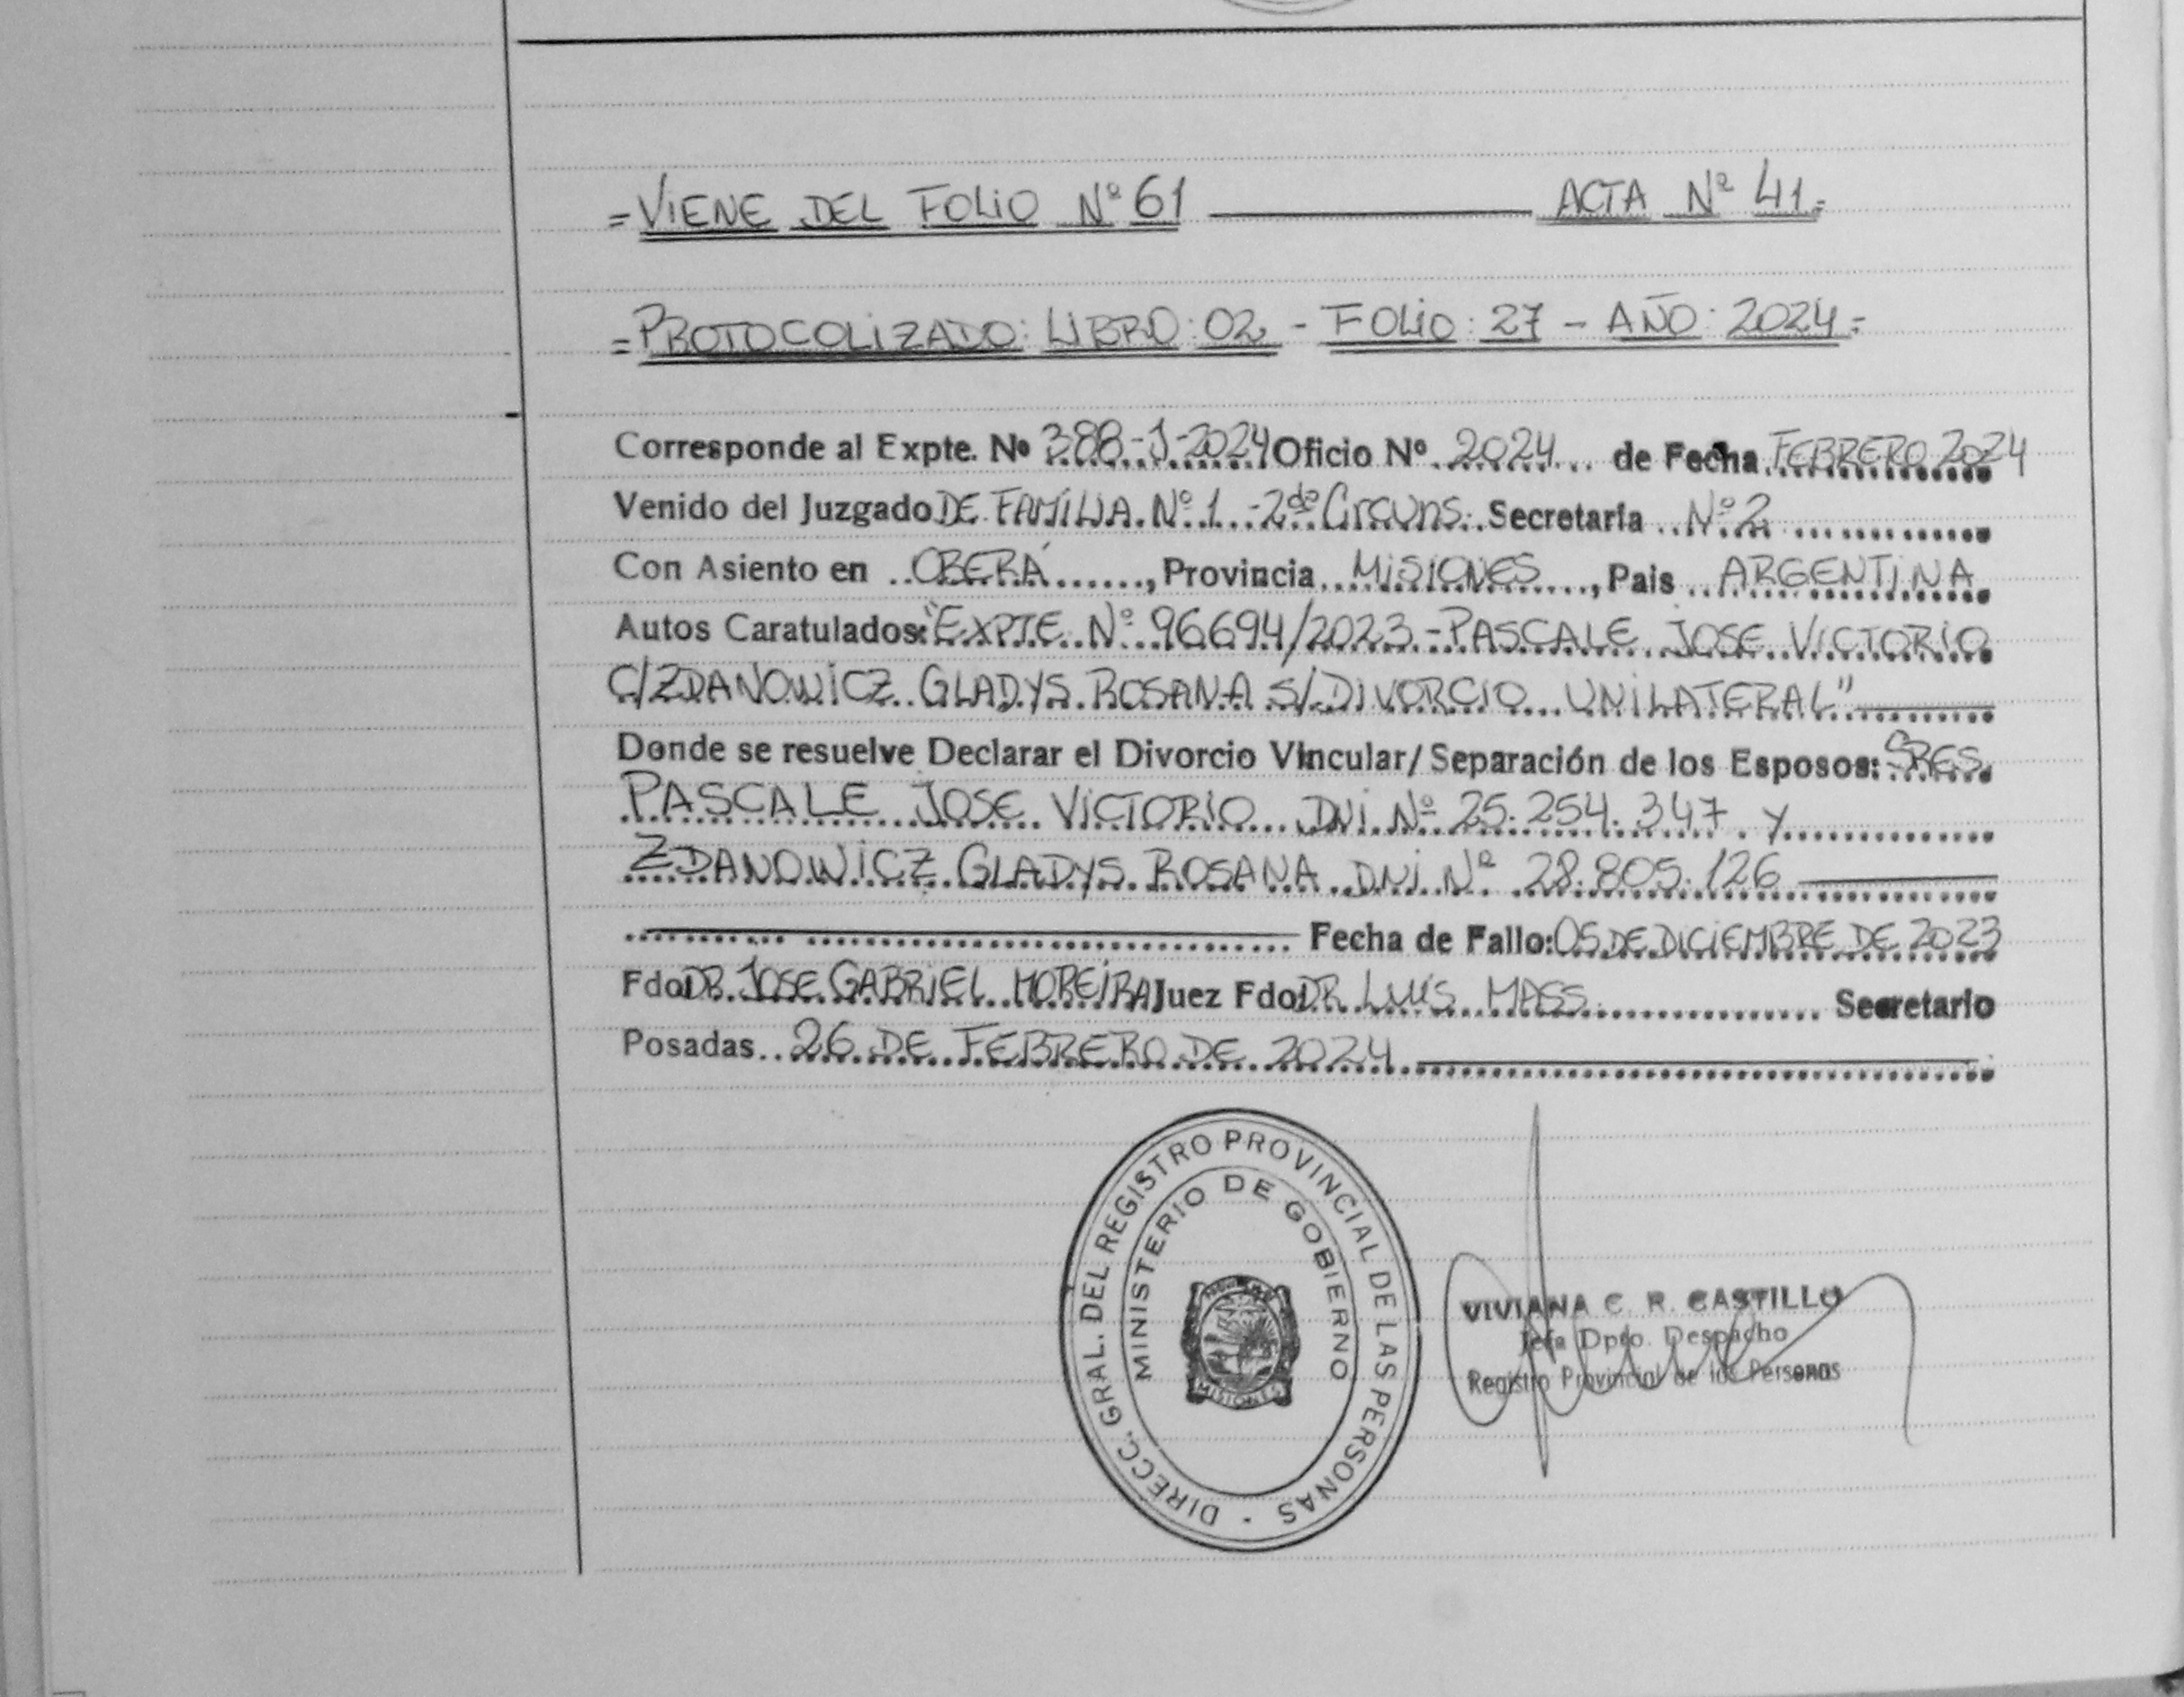 =VIENE DEL FOLIO Nº 61 ———— ACTA Nº 41.=
=PROTOCOLIZADO: LIBRO: 02 - FOLIO: 27 - AÑO: 2024.=
Corresponde al Expte. Nº 388-J-2024 Oficio Nº 2024 de Fecha FEBRERO 2024
Venido del Juzgado DE FAMILIA Nº 1 - 2da Circuns. Secretaría Nº 2
Con Asiento en OBERÁ, Provincia MISIONES, Pais ARGENTINA
Autos Caratulados: "EXPTE Nº 96694/2023 - PASCALE JOSE VICTORIO
C/ZDANOWICZ GLADYS ROSANA S/DIVORCIO UNILATERAL"
Donde se resuelve Declarar el Divorcio Vincular/Separación de los Esposos: SRES.
PASCALE JOSE VICTORIO DNI Nº 25.254.347 y
ZDANOWICZ GLADYS ROSANA DNI Nº 28.805.126
Fecha de Fallo: 05 DE DICIEMBRE DE 2023
Fdo: DR. JOSE GABRIEL MOREIRA Juez Fdo: DR LUIS MASS Secretario
Posadas 26 DE FEBRERO DE 2024
DIRECC. GRAL. DEL REGISTRO PROVINCIAL DE LAS PERSONAS -
MINISTERIO DE GOBIERNO
MISIONES
VIVIANA C. R. CASTILLO
Jefa Dpto. Despacho
Registro Provincial de las Personas